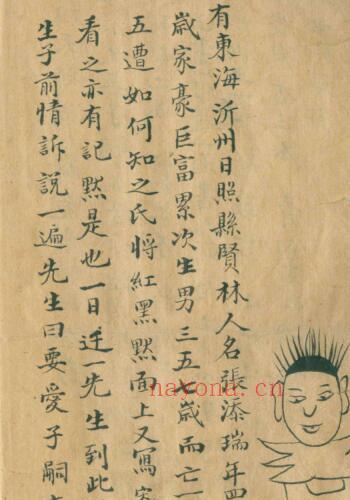 有東海沂州日照縣賢林人名張添瑞年四
歲家豪巨富累次生男三五七歲而亡一
五遭如何知之氏將紅黑黙面上又寫
看之亦有記黙是也一日迁一先生到此
生子前情訴說一遍先生曰要愛子嗣
nayona.cn